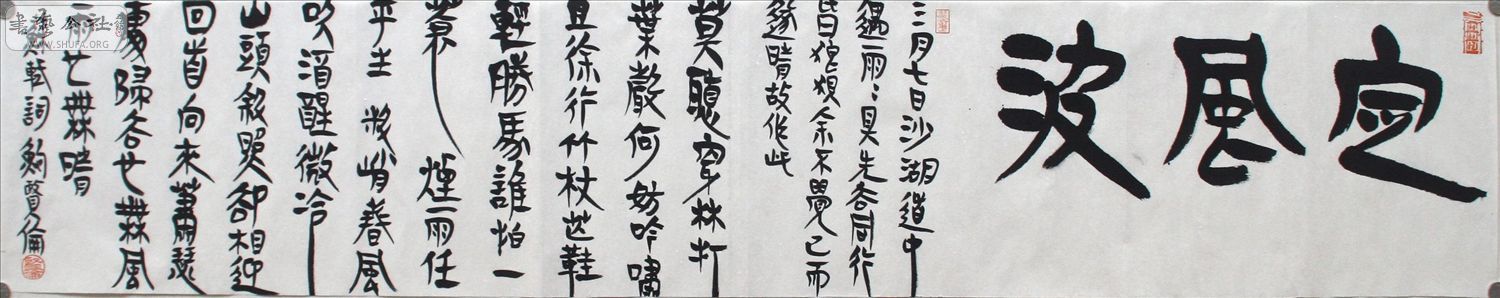 定風波
三月七日沙湖道中
遇雨〻具先去同行
皆狼狽余不覺已而
遂晴故作此
莫聽穿林打
葉聲何妨吟嘯
且徐行竹杖芒鞋
輕勝馬誰怕一
蓑煙雨任
平生料峭春風
吹酒醒微冷
山頭斜照卻相迎
回首向來蕭瑟
處歸去也無風
雨也無晴
蘇軾詞鮑賢倫
書藝公社
WWW.SHUFA.ORG